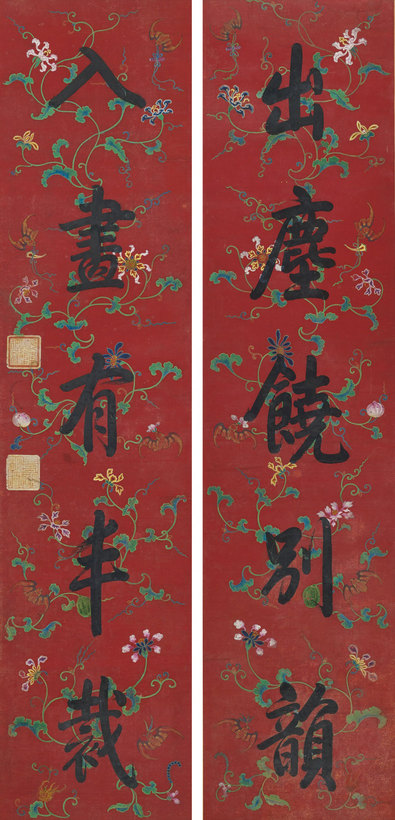 出塵饒別韻
入畫有丰裁